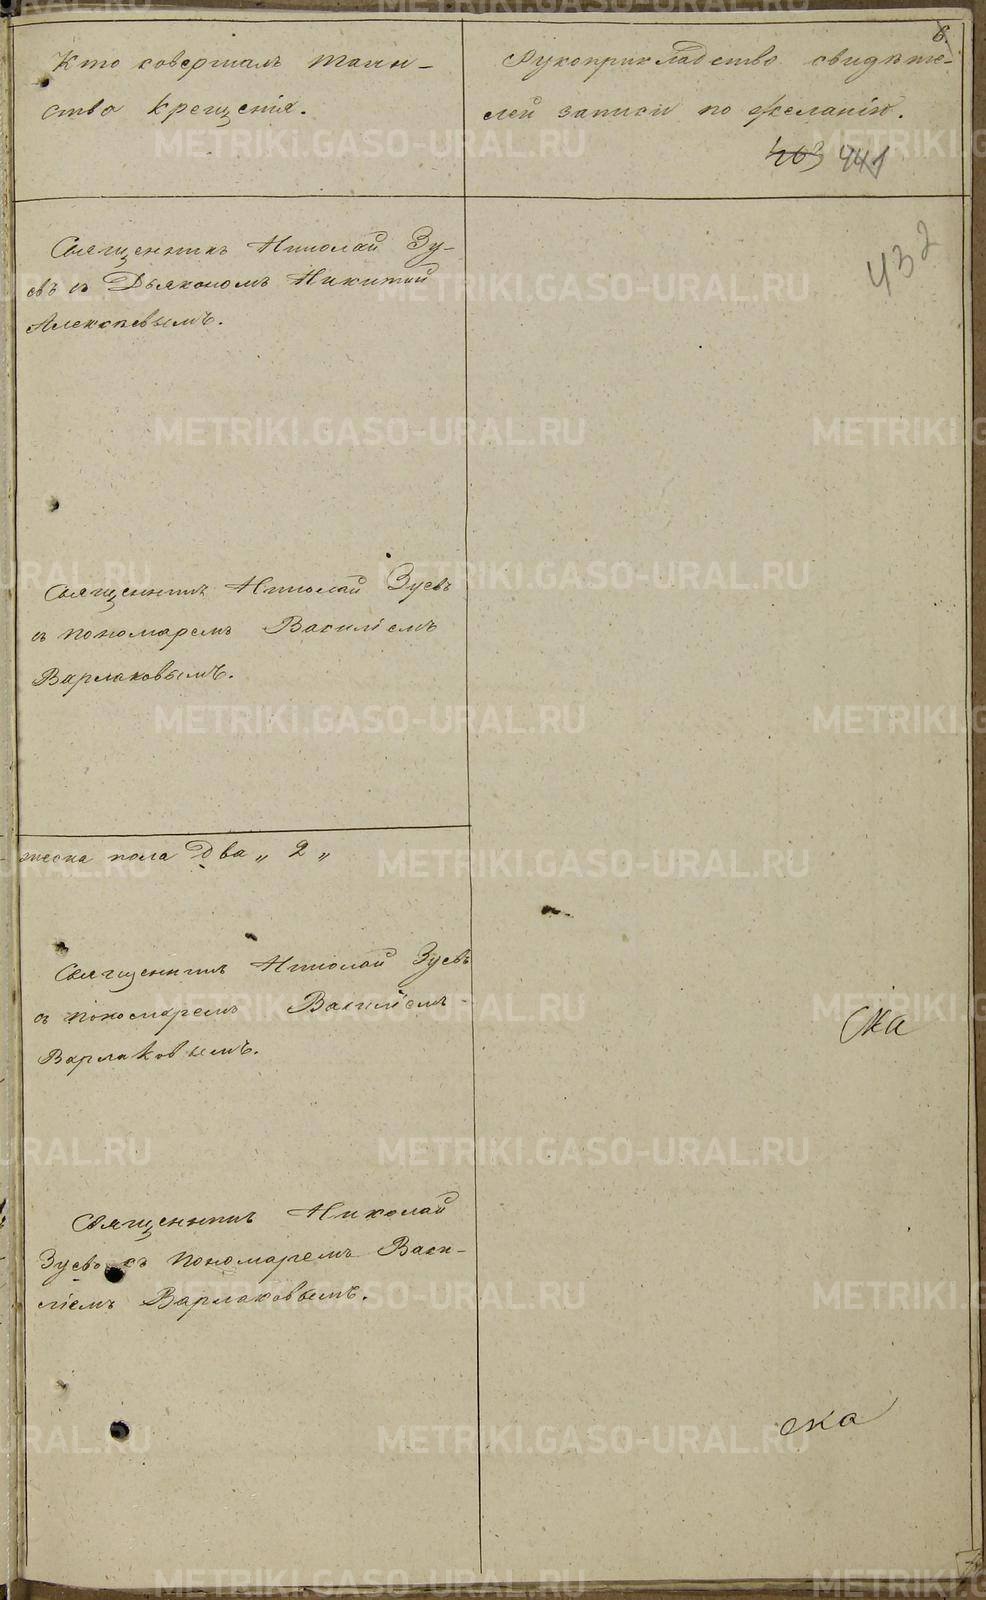 6.
Кто совершалъ таин-
ство крещенія.
Рукоприкладство свидѣте-
лей записи по желанію.
463 441
432
Священникъ Николай Зу-
евъ съ Дьякономъ Никитой
Алексѣевымъ.
Священникъ Николай Зуевъ
съ пономаремъ Василіемъ
Варлаковымъ.
женска пола два „ 2 „
Священникъ Николай Зуевъ
съ пономаремъ Василіемъ
Варлаковымъ.
Священникъ Николай
Зуевъ съ пономаремъ Васи-
ліемъ Варлаковымъ.
ска
METRIKI.GASO-URAL.RU